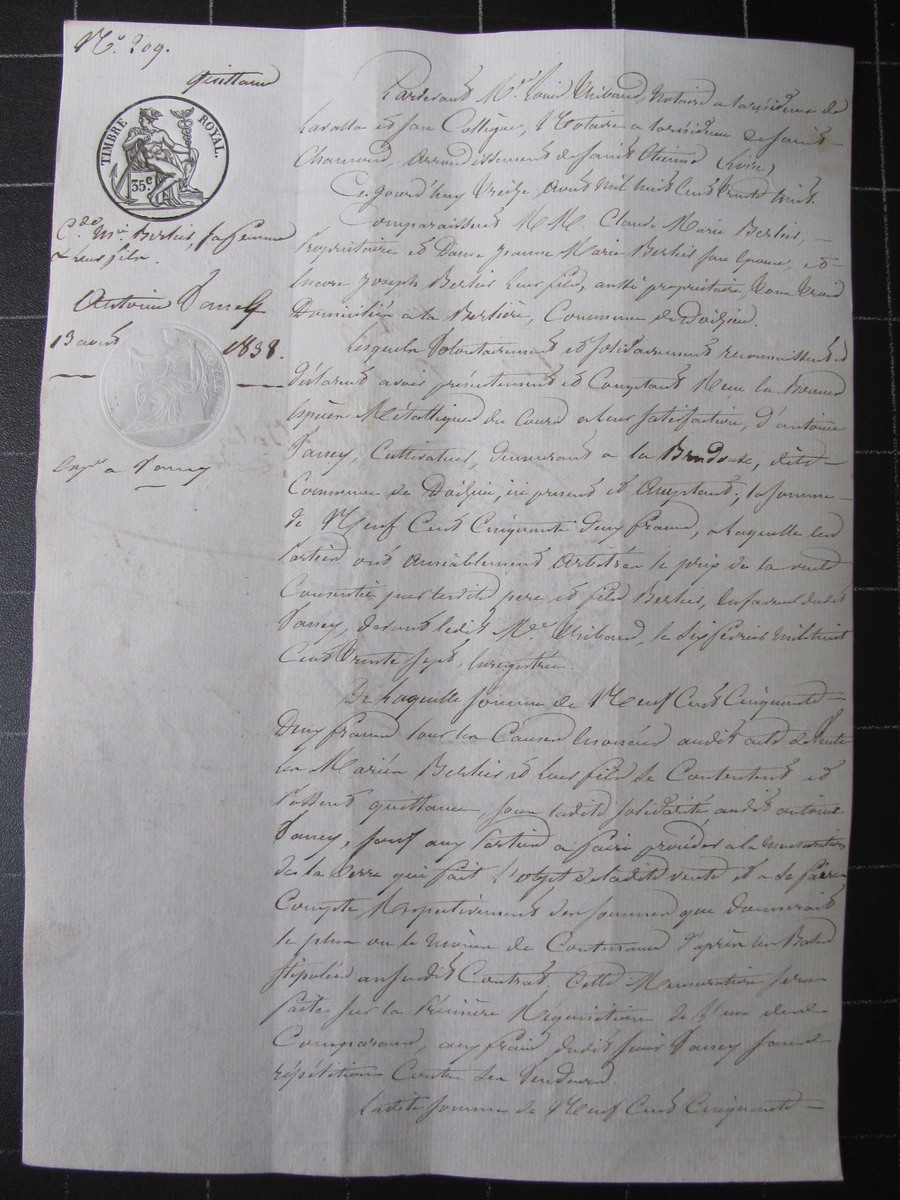 N.° 209.
quittance
TIMBRE ROYAL.
35.c
C.de M.ie Berlier sa femme
& leur fils.
Antoine
13 avril
1838.
Pardevant M.e Louis Thibaud, Notaire a la résidence de
Lavalla et son Collègue, Notaire a la résidence de Saint
Chamond, arrondissement de Saint Etienne (Loire)
Ce jourd'huy treize, avril mil huit cent trente huit.
Comparaissent MM. Claude Marie Berlier
Propriétaire et Dame Jeanne Marie Berlier son épouse, et
encore Joseph Berlier leur fils, aussi propriétaire, tous trois
Domiciliés a la Berlière, Commune de Doizieu.
Lesquels volontairement et solidairement reconnaissent et
déclarent avoir présentement et Comptant Reçu la bonnes
espèces Métalliques du Cours a leur satisfaction, d'antoine
cultivateur, demeurant a la dite
Commune de Doizieu, ici présent et acceptant, la somme
de Neuf Cent Cinquante deux francs, a laquelle les
parties ont amiablement arbitrés le prix de la vente
Consentie par lesdits père et fils Berlier, en faveur dudit
devant ledit M.e Thibaud, le six février mil huit
Cent trente sept, Enregistrée.
De laquelle somme de Neuf Cent Cinquante
Deux francs pour les Causes énoncées audit acte de vente
les Mariés Berlier et leur fils se Contentent et
passent quittance, sous ladite solidarité audit antoine
sauf aux parties a faire procéder a la mensuration
de la terre qui fait l'objet de ladite vente et a se faire
Compte Respectivement des sommes que donnerait
le plus ou le moins de Contenance d'après les Bases
stipulées au susdit Contrat. Cette Mensuration sera
faite sur la Première Réquisition de l'un des
Comparans, aux frais dudit sieur sans
répétition Contre les Vendeurs.
Ladite somme de Neuf Cent Cinquante